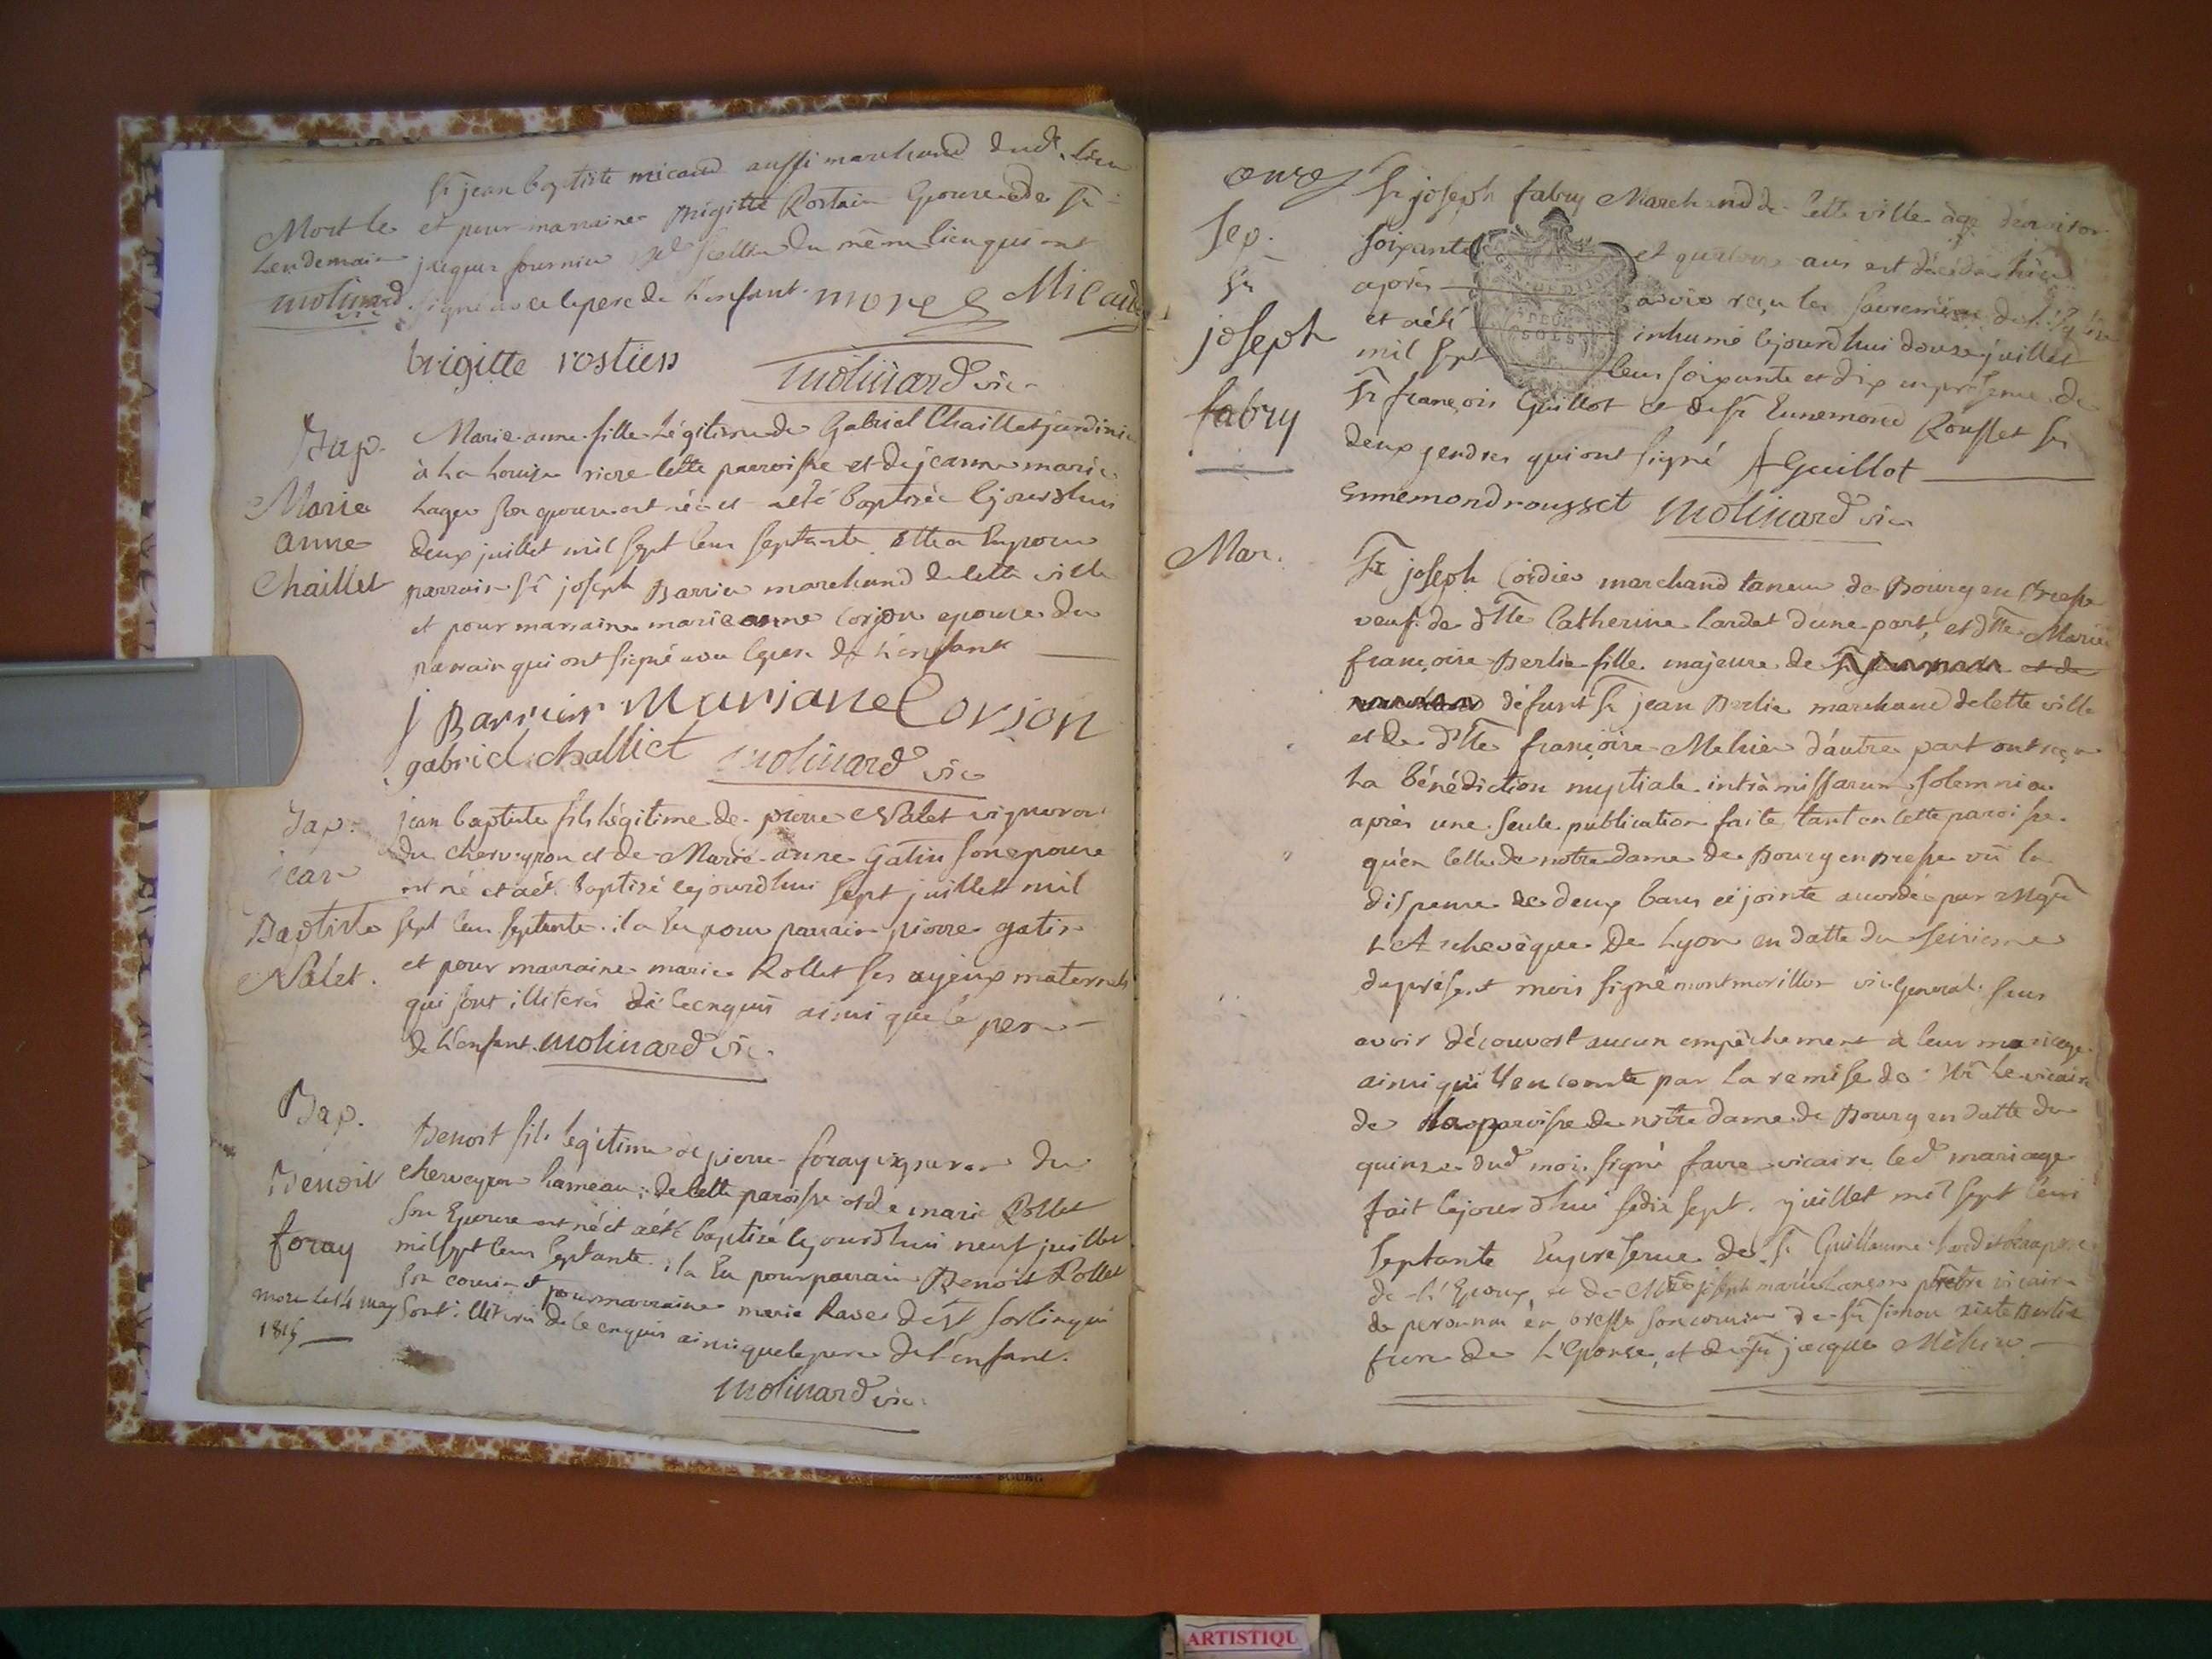 sr jean baptiste micaud aussi marchand dud. lieu
Mort le
lendemain
molinard
vic
et pour marraine brigitte Rostain epouse de sr
jacques fournier du même lieu qui ont
signé avec le pere de l'enfant. Micaud
brigitte rostien
molinard vic
Bap.
Marie
anne
Chaillet
Marie anne fille légitime de Gabriel Chaillet jardinier
à la riere cette parroisse et de jeanne marie
son epouse est née et a été baptisée cejourdhui
deux juillet mil sept cens septante elle a eu pour
parrain sr joseph Barrier marchand de cette ville
et pour marraine marie anne Corjon epouse du
parrain qui ont signé avec le pere de l'enfant
j Barrier Mariane Corjon
gabriel challiet molinard vic
Bap.
jean
Baptiste
Valet.
jean baptiste fils légitime de pierre Valet vigneron
du cherveyron et de Marie anne gatin son epouse
est né et a été baptisé cejourdhui sept juillet mil
sept cens septante. il a eu pour parrain pierre gatin
et pour marraine marie Rollet ses ayeux maternels
qui sont illiterés de ce enquis ainsi que le pere
de l'enfant. molinard vic.
Bap.
Benoit
foray
mort le 4 may
1815
Benoit fils légitime de pierre foray vigneron du
cherveyron hameau de cette paroisse et de marie Rollet
son Epouse est né et a été baptisé cejourdhui neuf juillet
mil sept cens septante. il a eu pour parrain Benoit Rollet
son cousin et pour marraine marie Rave de st sorlin qui
sont illiterés de ce enquis ainsi que le pere de l'enfant.
molinard vic.
onze
Sep.
sr
joseph
fabry
sr joseph fabry Marchand de cette ville agé d'environ
soixante et quatorze ans est décédé hier
après avoir reçu les sacremens de l'Eglise
et a été inhumé cejourdhui douze juillet
mil sept cens soixante et dix en présence de
sr françois Guillot et de sr Ennemond Rousset ses
deux gendres qui ont signé f Guillot
Ennemond rousset molinard vic
Mar.
sr joseph Cordier marchand taneur de Bourg en Bresse
veuf de dlle Catherine Lardet d'une part, et dlle Marie
françoise Berlie fille majeure de sr et de
défunt sr jean Berlie marchand de cette ville
et de dlle françoise Mehier d'autre part ont reçu
la bénédiction nuptiale intrà missarum solemnia
après une seule publication faite tant en cette paroisse
qu'en celle de notre dame de Bourg en Bresse vû la
dispense de deux bans cy jointe accordée par Mgr
L'Archevêque de Lyon en datte du seizieme
du présent mois signé montmorillon vic. general. sans
avoir découvert aucun empêchement à leur mariage
ainsi qu'il en conste par la remise de Mr le vicaire
de la paroisse de notre dame de Bourg en datte du
quinze dud. mois signé favre vicaire led. mariage
fait cejourdhui dix sept juillet mil sept cens
septante En présence de sr Guillaume
de l'Epoux, et de joseph marie prêtre vicaire
de peronnas en bresse son cousin de sr simon sixte Berlie
frere de l'Epouse, et de sr jacque Méhier
ARTISTIQU